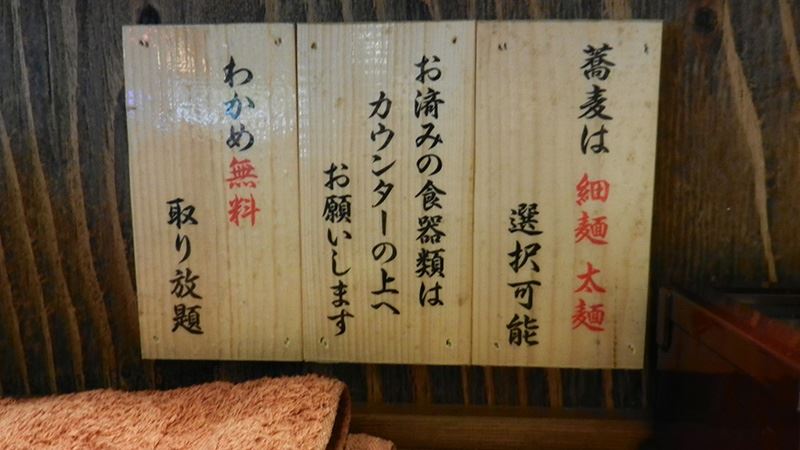 蕎麦は 細麺 太麺
選択可能
お済みの食器類は
カウンターの上へ
お願いします
わかめ無料
取り放題